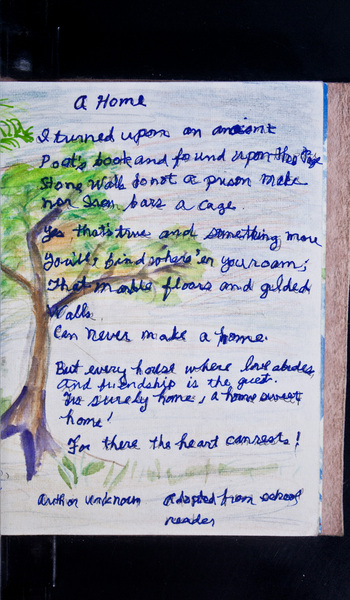 A Home
I turned upon an ancient
Poet's book and found upon the Page
Stone Walls do not a prison make
nor Iron bars a cage.
Yes that's true and something more
You'll find where'er you roam,
That marble floors and gilded
Walls
Can never make a home.
But every house where love abides
and friendship is the guest.
Is surely home, a home sweet
home!
For there the heart can rests!
Author unknown Adapted from school
reader